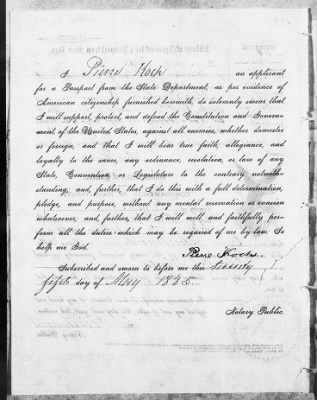 I Pierre Koch an applicant
for a Passport from the State Department, as per evidence of
American citizenship furnished herewith, do solemnly swear that
I will support, protect, and defend the Constitution and Govern-
ment of the United States, against all enemies, whether domestic
or foreign, and that I will bear true faith, allegiance, and
loyalty to the same, any ordinance, resolution, or law of any
State, Convention or Legislature to the contrary notwith-
standing; and, further, that I do this with a full determination,
pledge, and purpose, without any mental reservation or evasion
whatsoever, and, further, that I will well and faithfully per-
form all the duties which may be required of me by law. So
help me God.
Koch
Subscribed and sworn to before me this twenty
fifth day of May 1885
Notary Public.